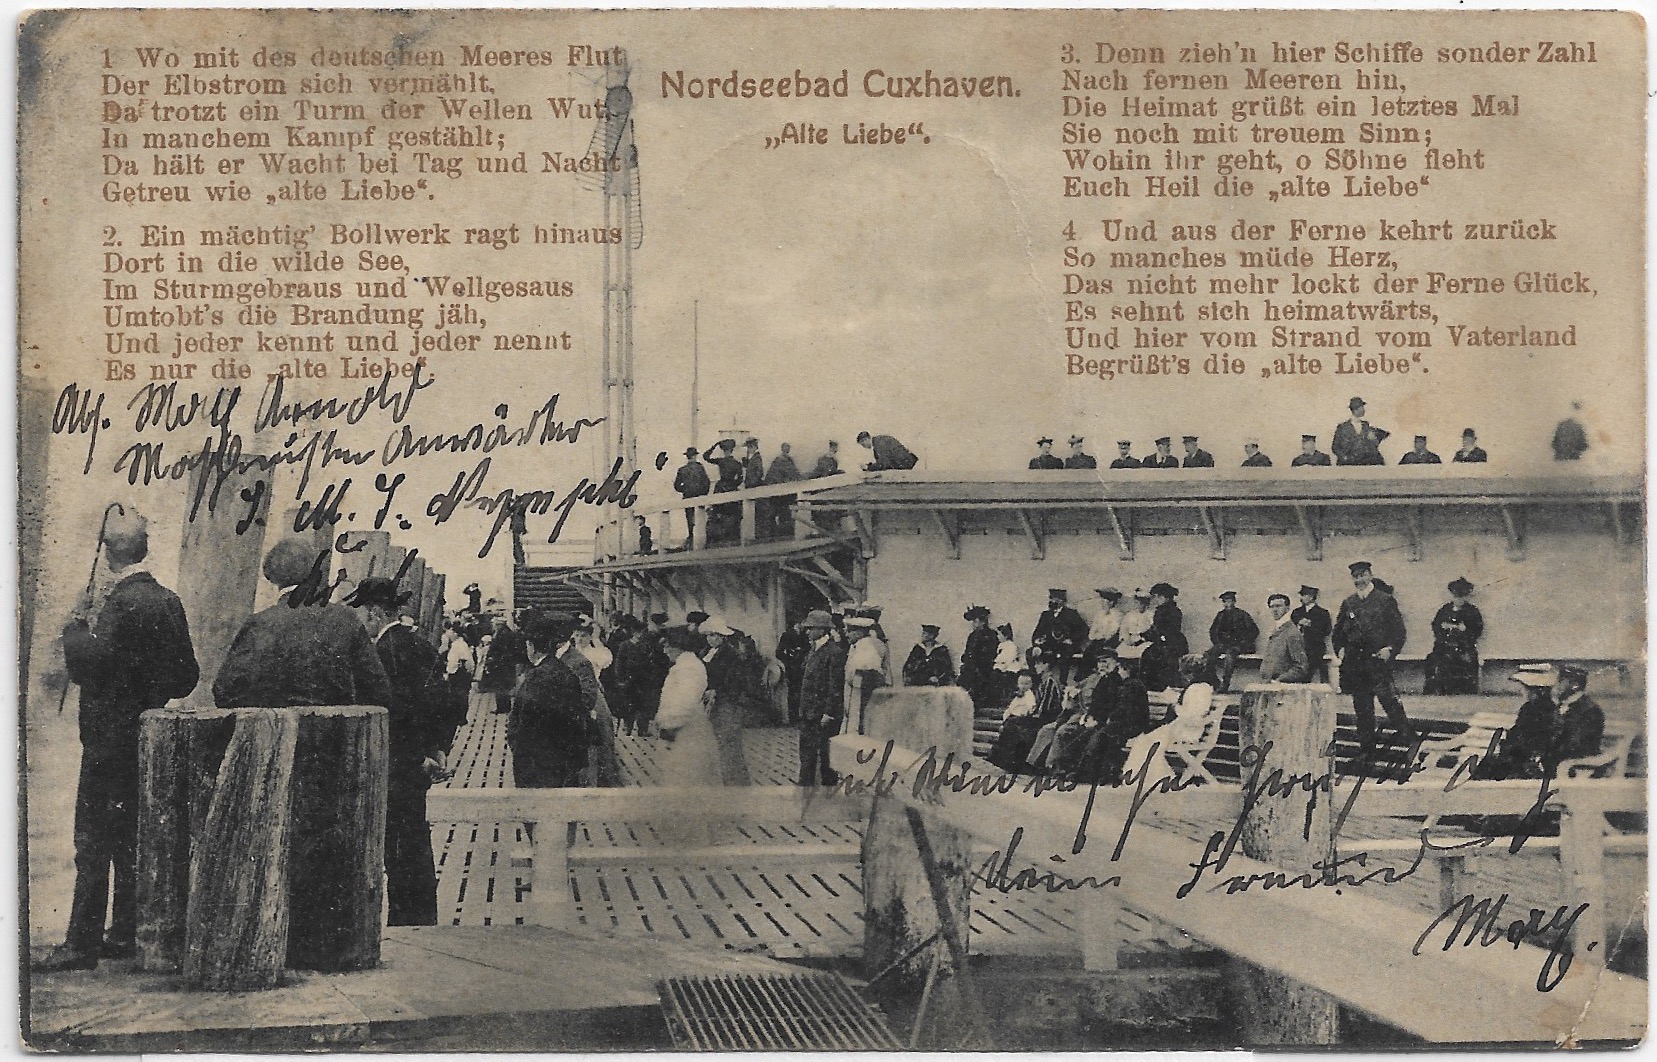 Nordseebad Cuxhaven.
„Alte Liebe“.
1 Wo mit des deutschen Meeres Flut
Der Elbstrom sich vermählt,
Da trotzt ein Turm der Wellen Wut,
In manchem Kampf gestählt;
Da hält er Wacht bei Tag und Nacht
Getreu wie „alte Liebe“.
2. Ein mächtig' Bollwerk ragt hinaus
Dort in die wilde See,
Im Sturmgebraus und Wellgesaus
Umtobt's die Brandung jäh,
Und jeder kennt und jeder nennt
Es nur die „alte Liebe“.
3. Denn zieh'n hier Schiffe sonder Zahl
Nach fernen Meeren hin,
Die Heimat grüßt ein letztes Mal
Sie noch mit treuem Sinn;
Wohin ihr geht, o Söhne fleht
Euch Heil die „alte Liebe“
4. Und aus der Ferne kehrt zurück
So manches müde Herz,
Das nicht mehr lockt der Ferne Glück,
Es sehnt sich heimatwärts,
Und hier vom Strand vom Vaterland
Begrüßt's die „alte Liebe“.
Abs. Max Arnold
Maschinisten Anwärter
S. M. S.
auf Wiedersehen
Dein Freund
Max.